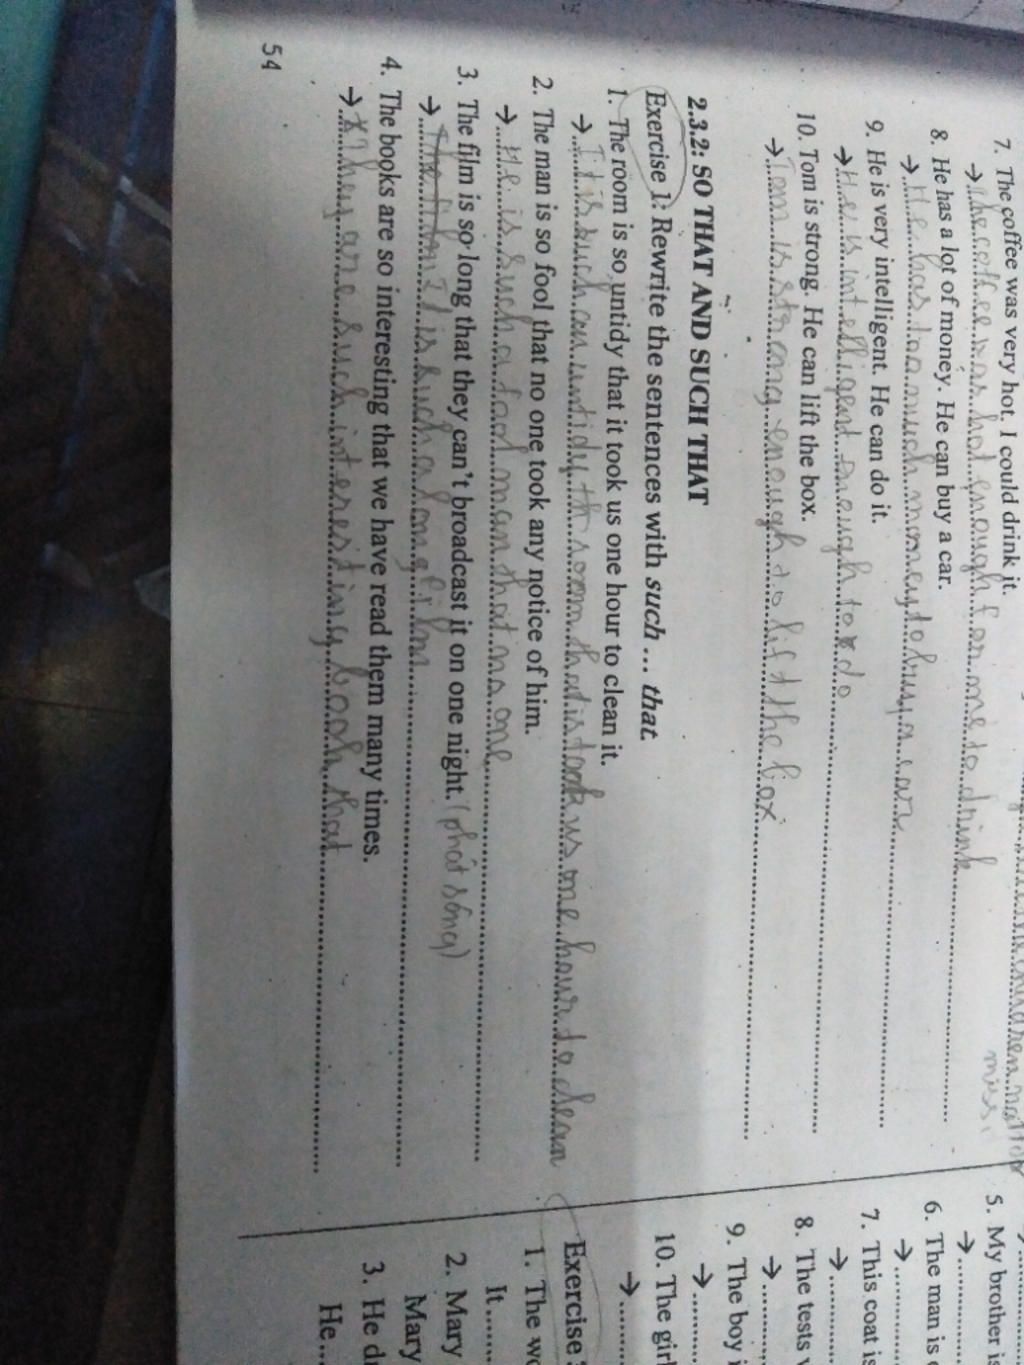 7. The coffee was very hot. I could drink it.
→ The coffee was hot enough for me to drink
8. He has a lot of money. He can buy a car.
→ He has too much money to buy a car
9. He is very intelligent. He can do it.
→ He is intelligent enough to do
10. Tom is strong. He can lift the box.
→ Tom is strong enough to lift the box
2.3.2: SO THAT AND SUCH THAT
Exercise 1: Rewrite the sentences with such ... that.
1. The room is so untidy that it took us one hour to clean it.
→ It is such an untidy room that is took us one hour to clean
2. The man is so fool that no one took any notice of him.
→ He is such a fool man that no one
3. The film is so long that they can't broadcast it on one night. (phát sóng)
→ The film It is such a long film
4. The books are so interesting that we have read them many times.
→ They are such interesting book that
54
miss
5. My brother is
→
6. The man is
→
7. This coat is
→
8. The tests
→
9. The boy
→
10. The girl
→
Exercise
1. The
It
2. Mary
Mary
3. He
He